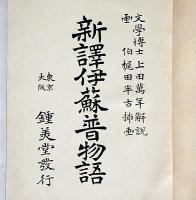 文學博士上田萬年解說
畫伯梶田半古揷畫
新譯伊蘇普物語
東京
大阪
鍾美堂發行